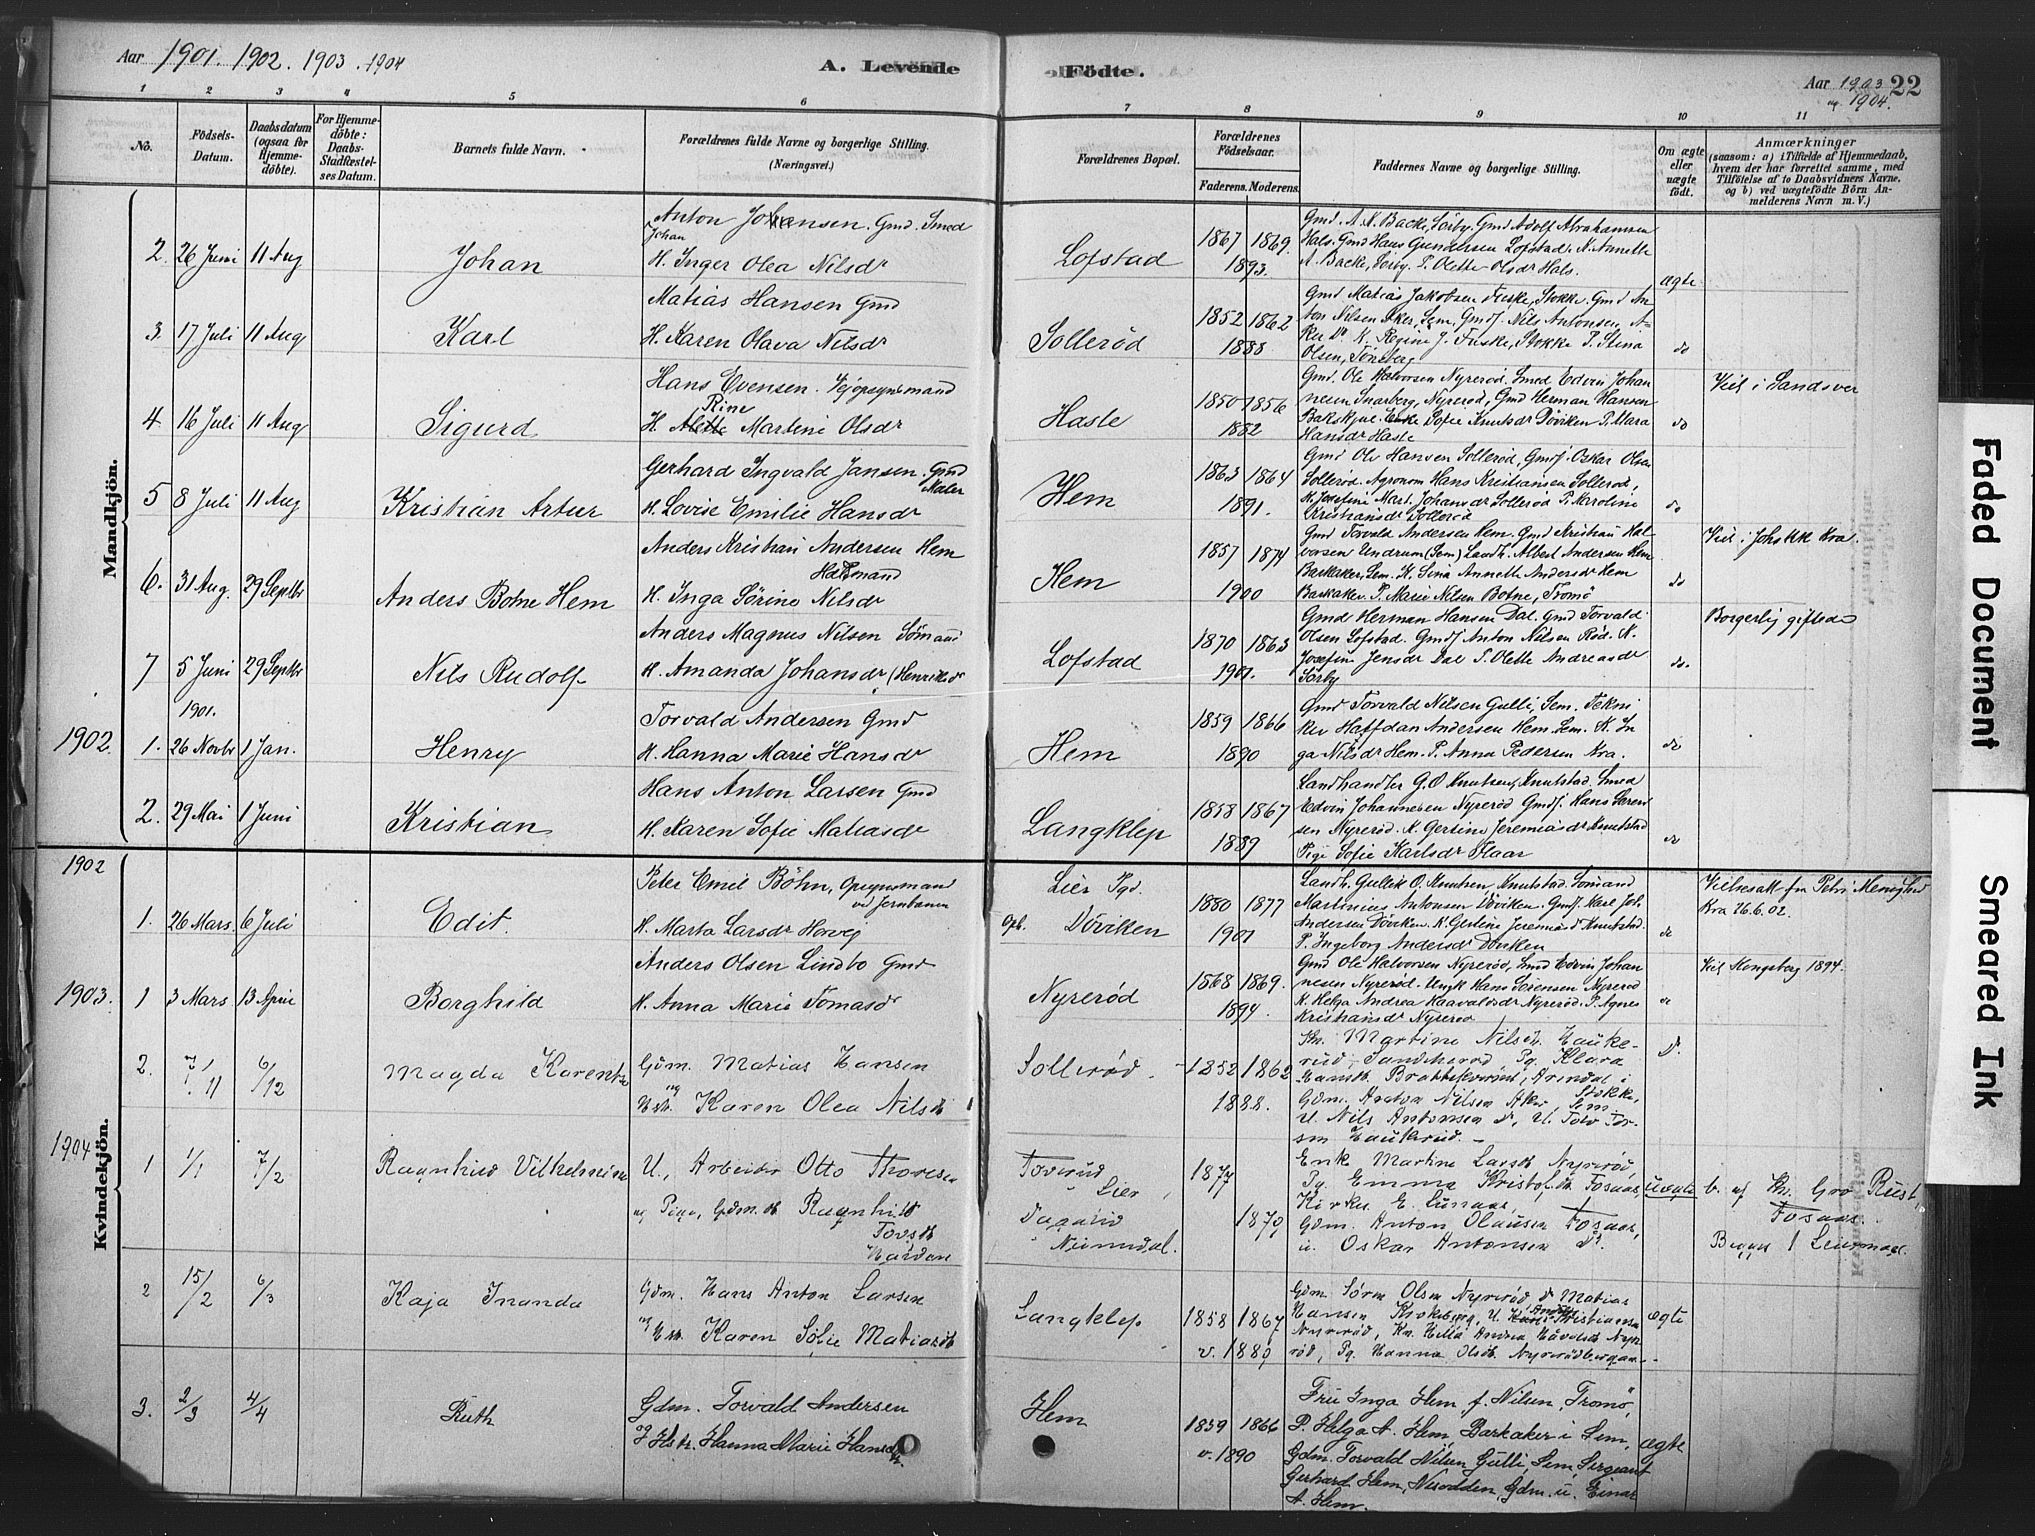 Aar 1901. 1902. 1903. 1904
A. Levende Födte.
Aar 1903 22
og 1904.
1 2 3 4 5 6 7 8 9 10 11
No.
Födsels-
Datum.
Daabsdatum
(ogsaa for
Hjemme-
döbte).
For Hjemme-
döbte:
Daabs-
Stadfæstel-
ses Datum.
Barnets fulde Navn.
Forældrenes fulde Navne og borgerlige Stilling.
(Næringsvei.)
Forældrenes Bopæl.
Forældrenes
Födselsaar.
Faderens. Moderens.
Faddernes Navne og borgerlige Stilling.
Om ægte
eller
uægte
födt.
Anmærkninger
(saasom: a) i Tilfælde af Hjemmedaab,
hvem der har forrettet samme, med
Tilföielse af to Daabsvidners Navne,
og b) ved uægtefödte Börn An-
melderens Navn m. V.)
Mandkjön.
2. 26 Juni 11 Aug Johan
Anton Johansen Gmd. Smed
Johan
H. Inger Olea Nilsdr
Lofstad
1867 1869.
1893.
Gmd. A. N. Backe, Sörby. Gmd Adolf Abrahamsen
Hals. Gmd Hans Gundersen Lofstad. K. Annette
A. Backe, Sörby. P. Olette Olsdr Hals.
ægte
3. 17 Juli 11 Aug Karl
Matias Hansen Gmd
H. Karen Olava Nilsdr
Sollerød
1852 1862
1888
Gmd Matias Jakobsen Fuske, Stokke. Gmd An-
ton Nilsen Aker, Sem, Gmdf. Nils Antonsen, A-
ker Do K. Regine J. Fuske, Stokke P. Stina
Olsen, Tönsberg
do
4 16 Juli 11 Aug Sigurd
Hans Evensen. Vejopsynsmand
Rine
H. Alette Martine Olsdr
Hasle
1850 1856
1882
Gmd. Ole Halvorsen Nyrerød. Smed Edvin Johan
nesen Snarberg, Nyrerød, Gmd Herman Hansen
Bakskjue. Enke Sofie Knutsdr Döviken P. Mara
Hansdr Hasle
do
Viet i Sandsver
5 8 Juli 11 Aug Kristian Artur
Gerhard Ingvald Jansen. Gmd
Maler
H. Lovise Emilie Hansdr
Hem
1863 1864
1891.
Gmd Ole Hansen Sollerød, Gmdf. Oskar Olsen
Sollerød. Agronom Hans Kristiansen Sollerød,
K. Josefine Mart. Johansdr Sollerød P. Karoline
Kristiansdr Sollerød
do
6. 31 Aug. 29 Septbr Anders Botne Hem
Anders Kristian Andersen Hem
H. Inga Sörine Nilsdr
Hem
1857 1874
1900
Gmd Torvald Andersen Hem. Gmd Kristian Hal-
vorsen Undrum (Sem) Landh. Albert Andersen Hem
Barkaker, Sem. K. Sina Annette Andersdr Hem
Barkaker P. Marie Nilsen Botne, Tromö
do
Viet i Johs Kk Kra.
7 5 Juni 29 Septbr Nils Rudolf
Anders Magnus Nilsen Sömand
H. Amanda Johansdr (Henriksdr
Lofstad
1870 1863
1901.
Gmd Herman Hansen Dal. Gmd Torvald
Olsen Lofstad. Gmdf Anton Nilsen Rød. K.
Josefine Jensdr Dal P. Olette Andreasdr
Sörby
do.
Borgerlig giftede
1901.
1902. 1. 26 Novbr 1 Jan. Henry
Torvald Andersen Gmd
H. Hanna Marie Hansdr
Hem
1859 1866
1890
Gmd Torvald Nilsen Gulli, Sem. Tekni
ker Halfdan Andersen Hem, Sem. K. In
ga Nilsdr Hem. P. Anna Pedersen Kra.
do
2. 29 Mai 1 Juni Kristian
Hans Anton Larsen Gmd
H. Karen Sofie Matiasdr
Langklep
1858 1867
1889
Landhandler G. O Knutsen, Knutstad. Smed
Edvin Johannesen Nyrerød Gmdf. Hans Sören
sen Nyrerød. K. Gertine Jeremiasdr Knutstad
Pige Sofie Karlsdr Flaar
do
Kvindekjön.
1902
1. 26 Mars 6 Juli Edit.
Peter Emil Böhn, Opsynsmand
ved Jernbanen
H. Marta Larsdr Horveg
Lier Pgd.
Oph. Döviken
1880 1877
1901
Landh. Gullik O. Knutsen, Knutstad. Sömand
Martinius Antonsen Döviken. Gmdf. Karl Joh.
Andersen Döviken. K. Gertine Jeremiasdr Knutstad.
P. Ingeborg Andersdr Döviken
do
Vielsesatt fra Petri Menighed
Kra 26.6.02.
1903. 1 3 Mars 13 April Borghild
Anders Olsen Lindbo Gmd
H. Anna Marie Tomasdr
Nyrerød
1868 1869.
1894.
Gmd Ole Halvorsen Nyrerød, Smd Edvin Johan
nesen Nyrerød. Ungk Hans Sörensen Nyrerød
K. Helga Andrea Haavaldsdr Nyrerød. P. Agnes
Kristiansdr Nyrerød
do
Viet Kongsberg 1894.
2. 7/11 6/12 Magda Karentine
Gdm. Matias Hansen
og
Hst. Karen Olea Nilsdt
Sollerød
1852 1862
1888.
Kn. Martine Nilsdt. Hauke-
rud, Sandeherod Pg. Klara
Hansdt. Brattskverne, Arendal i
Stokke,
Gdm. Anton Nilsen Aker, Sem
U. Nils Antonsen do, U. Tolv Tor-
sen Haukerud. -
do
1904 1 1/1 7/2 Ragnhild Vilhelmine
U., Arbeider Otto Thoresen
og Pige, Gdm. dt. Ragnhild
Tovsdt
Haarden
Toverud
Lier,
1877
1879
Enke Martine Larsdt Nyrerød,
Pg. Emma Kristofsdt. Fosaas,
Kirkes. E. Lunaas,
Gdm. Anton Olausen Fosaas,
u. Oskar Antonsen do.
uægte
b. af Kn. Gro Rust,
Fosaas.
2 15/2 6/3 Kaja Inanda
Gdm. Hans Anton Larsen
og Hst. Karen Sofie Matiasdt
Langklep
1858 1867
v. 1889
Gdm. Sörn Olsen Nyrerød do Matias
Hansen Krokeborg, U. Karl Anders Kristiansen
Nyrerød, Kn. Hella Andrea Havoldsdt Nyre
rød, Pg. Hanna Olsdt. Nyrerødbergan.-
ægte
3. 2/3 4/4 Ruth
Gdm. Torvald Andersen
og Hstr. Hanna Marie Hansdtr.
Hem
1859 1866
v. 1890
Fru Inga Hem f. Nilsen, Tromö,
P. Helga A. Hem, Barkaker i Sem,
Gdm. Torvald Nilsen Gulli Sem, Sergeant
Gerhard Hem, Nesodden, Gdm. u. Einar
A. Hem.
ægte
Faded Document
Smeared Ink